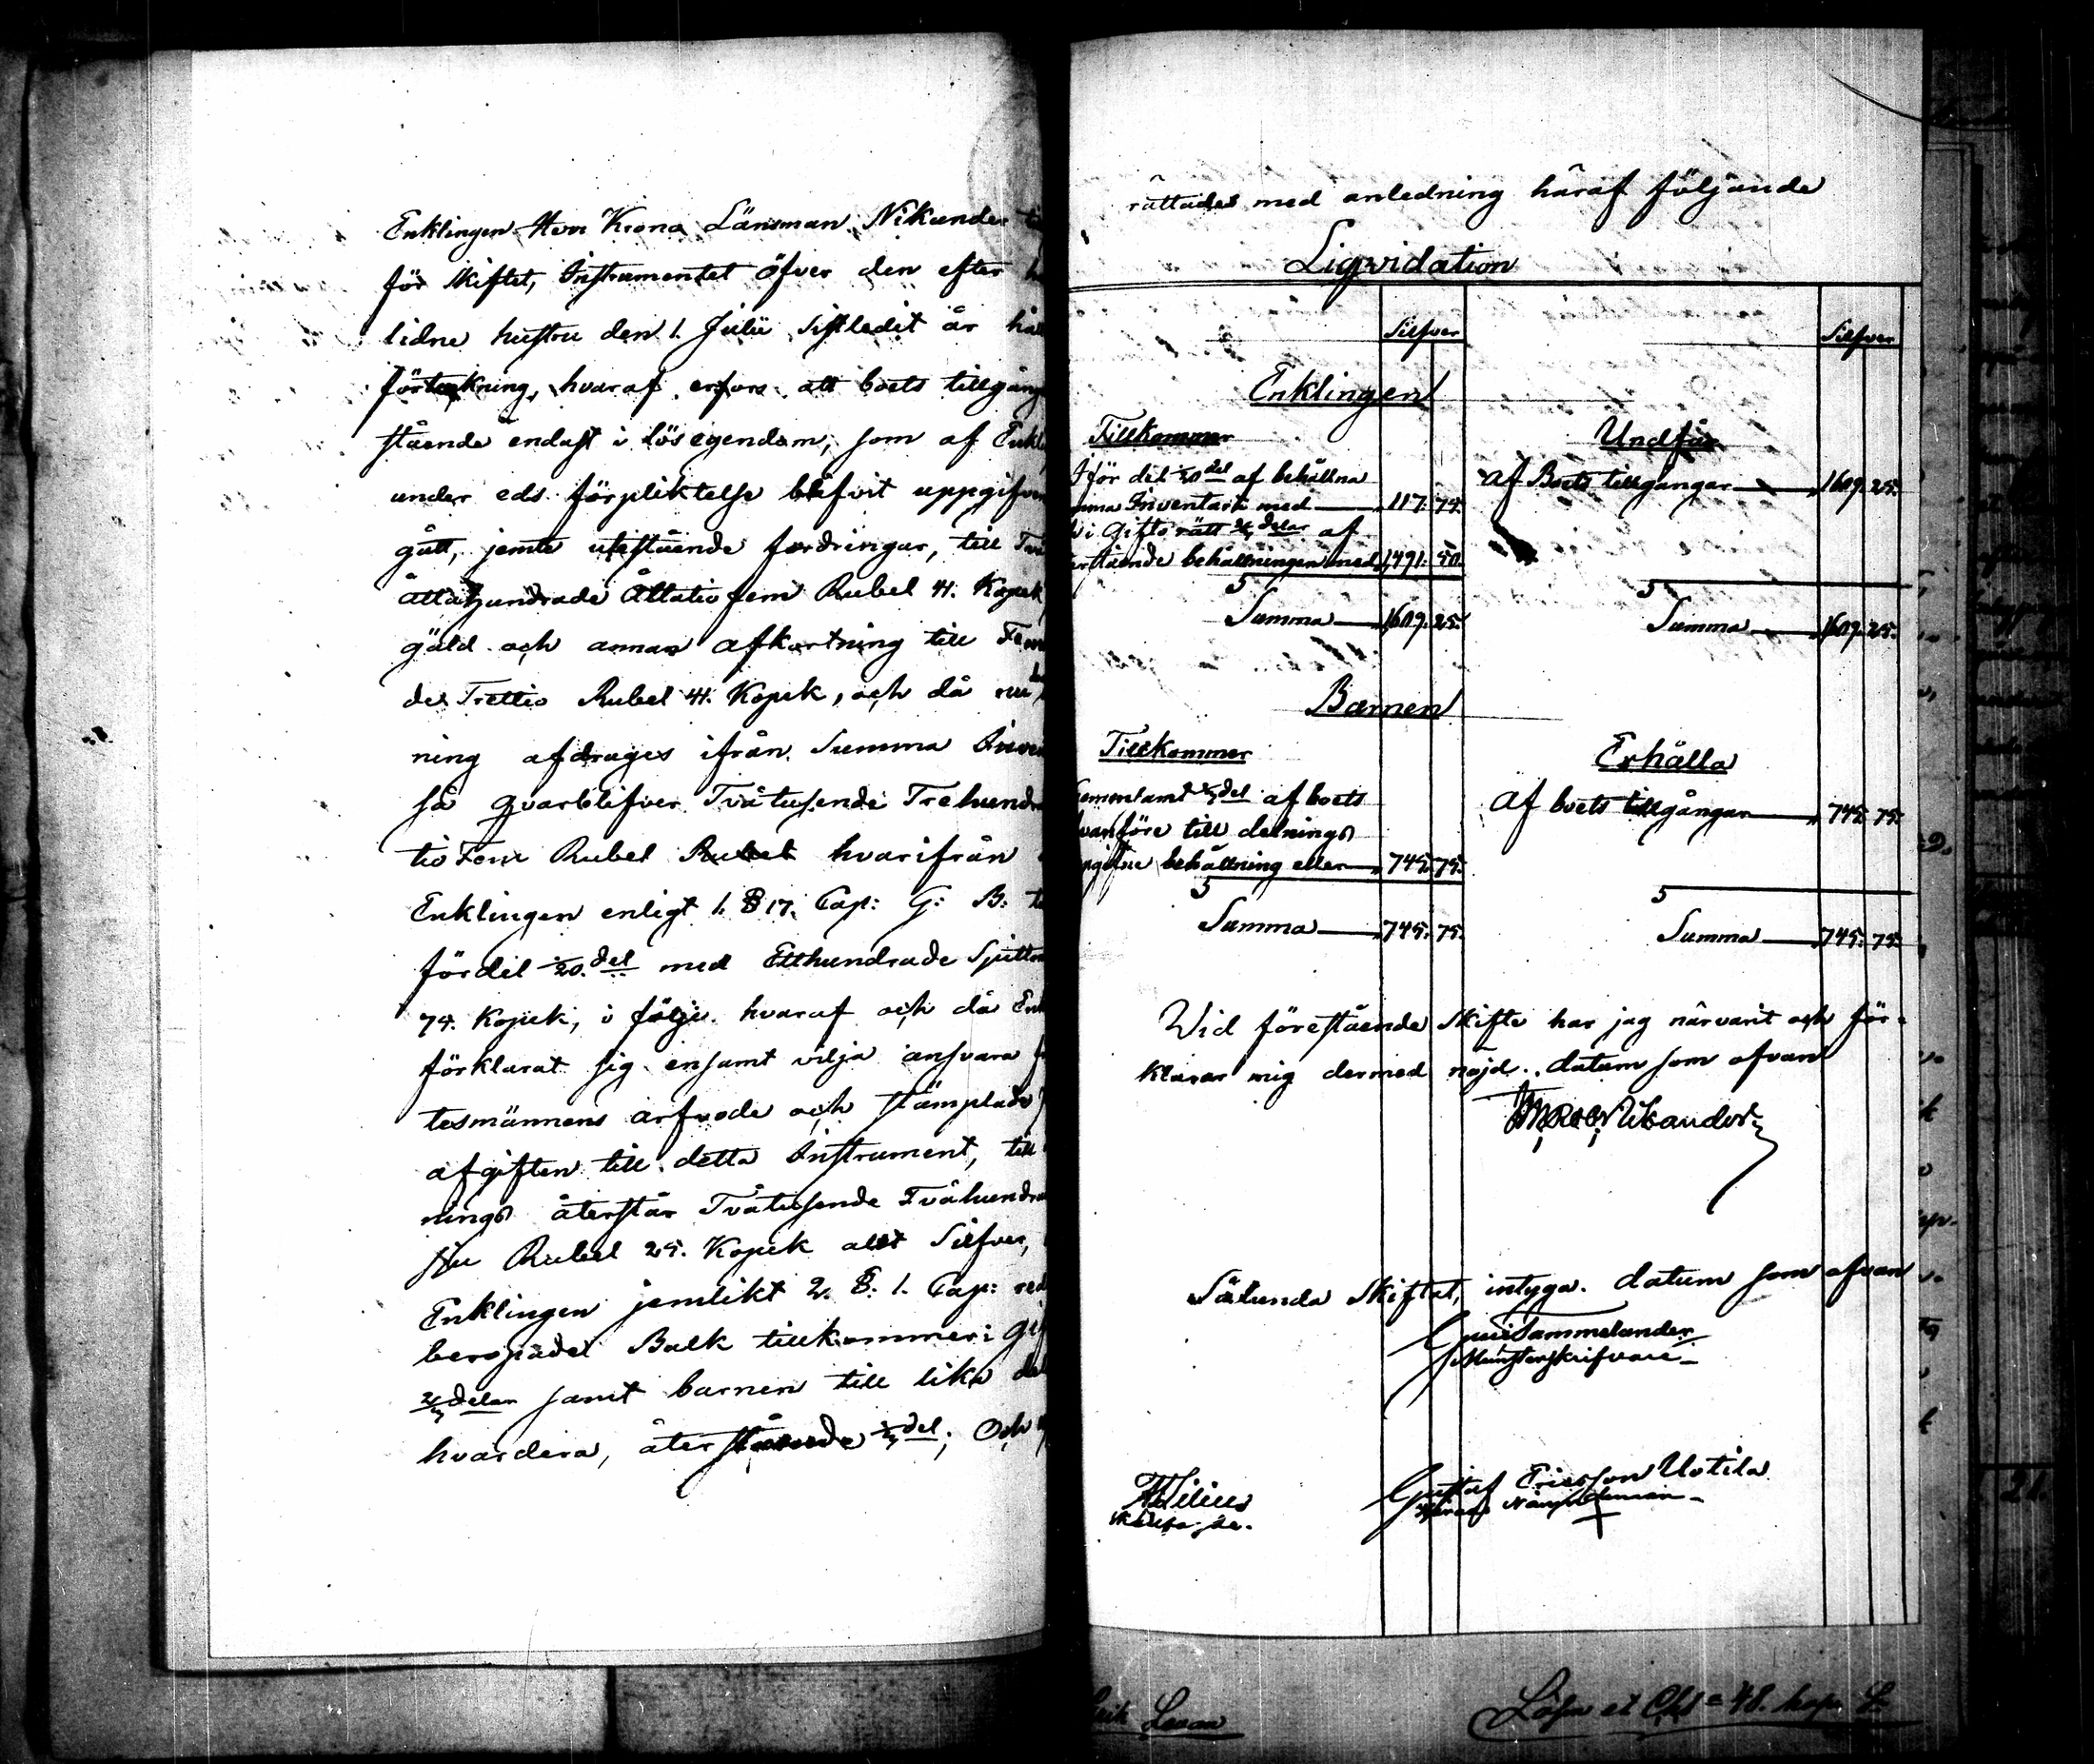 Enklingen Herr Krono Länsman Nikander
för skiftet, Instrumentet öfver den efter
lidne hustru den 1. Julii sistledit år
förtekning, hvaraf erfors att boets tillgång
stående endast i lös egendom, som af Enkl
under eds förpliktelse blifvit uppgifven
gått, jemte utestående fordringar, till Två
Åttahundrade Åttatio fem Rubel 41. Kopek
gäld och annan afkortning till Fem
de Trettio Rubel 41. Kopek, och då nu
ning afdrages ifrån Summa Inven
så qvarblifver Tvåtusende Trehundra
tio Fem Rubel Rubel hvarifrån
Enklingen enligt 1. § 17. Cap: G: B:
fördel 1/20.del med Etthundrade Sjutton
74. Kopek, i följe hvaraf och då Enk
förklarat sig ensamt vilja ansvara
tesmännens arfvode och stämplade
afgiften till detta Instrument, till
nings återstår Tvåtusende Tvåhundra
sju Rubel 25. Kopek allt Silfver,
Enklingen jemlikt 2. §. 1. Cap:
beropådel Balk tillkommer i Gif
2/3 delar samt barnen till lika
hvardera, återstående 1/3 del; Och
rättades med anledning häraf följande
Liqvidation
Silfver Silfver
Enklingen
Tillkommer Undfår
för del 1/20 del af behållna af Boets tillgångar 1609. 25.
Inventarii med 117. 74.
i Gifto rätt 2/3 delar af
stående behållningen med 1,491. 50.
Summa 1,609. 25. Summa 1,609. 25.
Barnen
Tillkommer Erhålla
samt 1/3 del af boets af boets tillgångar 745. 75.
före till delnings
behållning eller 745. 75.
Summa 745. 75. Summa 745. 75.
Wid förestående skifte har jag närvarit och för-
klarar mig dermed nöjd. datum som ofvan
Nikander
Sålunda skiftat, intyga. datum som ofvan
Tammelander
Mönsterskrifvare
Gustaf Ericsson Uotila
Lösen et Cht = 48. kop. S.